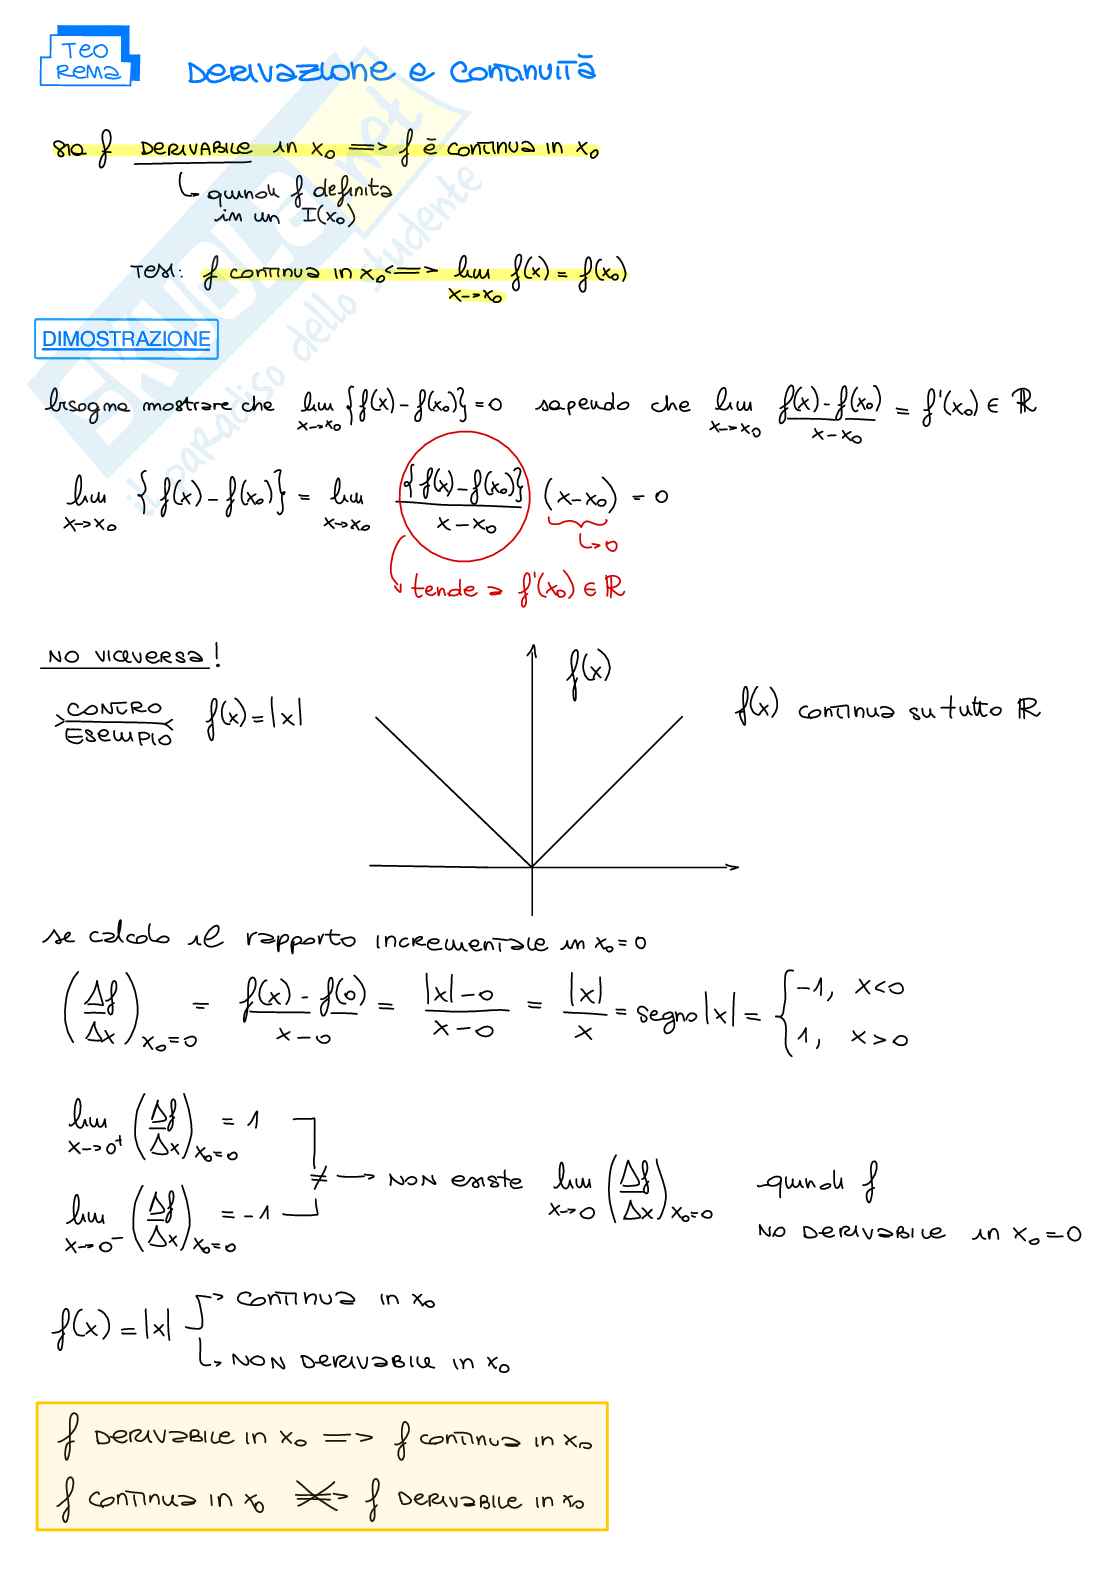 TEO
REMA
DERIVAZIONE e CONTINUITÀ
sia f DERIVABILE in x₀ => f è continua in x₀
quindi f definita
in un I(x₀)
TESI: f continua in x₀ <=> lim f(x) = f(x₀)
x→x₀
SKUOLA.net
il paradiso dello studente
DIMOSTRAZIONE
bisogna mostrare che lim {f(x) - f(x₀)} = 0 sapendo che lim f(x) - f(x₀) = f'(x₀) ∈ ℝ
x→x₀ x→x₀ x - x₀
lim { f(x) - f(x₀)} = lim {f(x) - f(x₀)} (x - x₀) = 0
x→x₀ x→x₀ x - x₀
↳ 0
tende a f'(x₀) ∈ ℝ
NO VICEVERSA!
f(x)
CONTRO
ESEMPIO
f(x) = |x|
f(x) continua su tutto ℝ
se calcolo il rapporto incrementale in x₀ = 0
(Δf/Δx)x₀=0 = f(x) - f(0) / x - 0 = |x| - 0 / x - 0 = |x| / x = segno |x| = { -1, x < 0
1, x > 0
lim x→0⁺ (Δf/Δx)x₀=0 = 1
≠ → NON esiste lim x→0 (Δf/Δx)x₀=0 quindi f
lim x→0⁻ (Δf/Δx)x₀=0 = -1
NO DERIVABILE in x₀ = 0
f(x) = |x| → continua in x₀
↳ NON DERIVABILE in x₀
f DERIVABILE in x₀ => f continua in x₀
f continua in x₀ ≠> f DERIVABILE in x₀